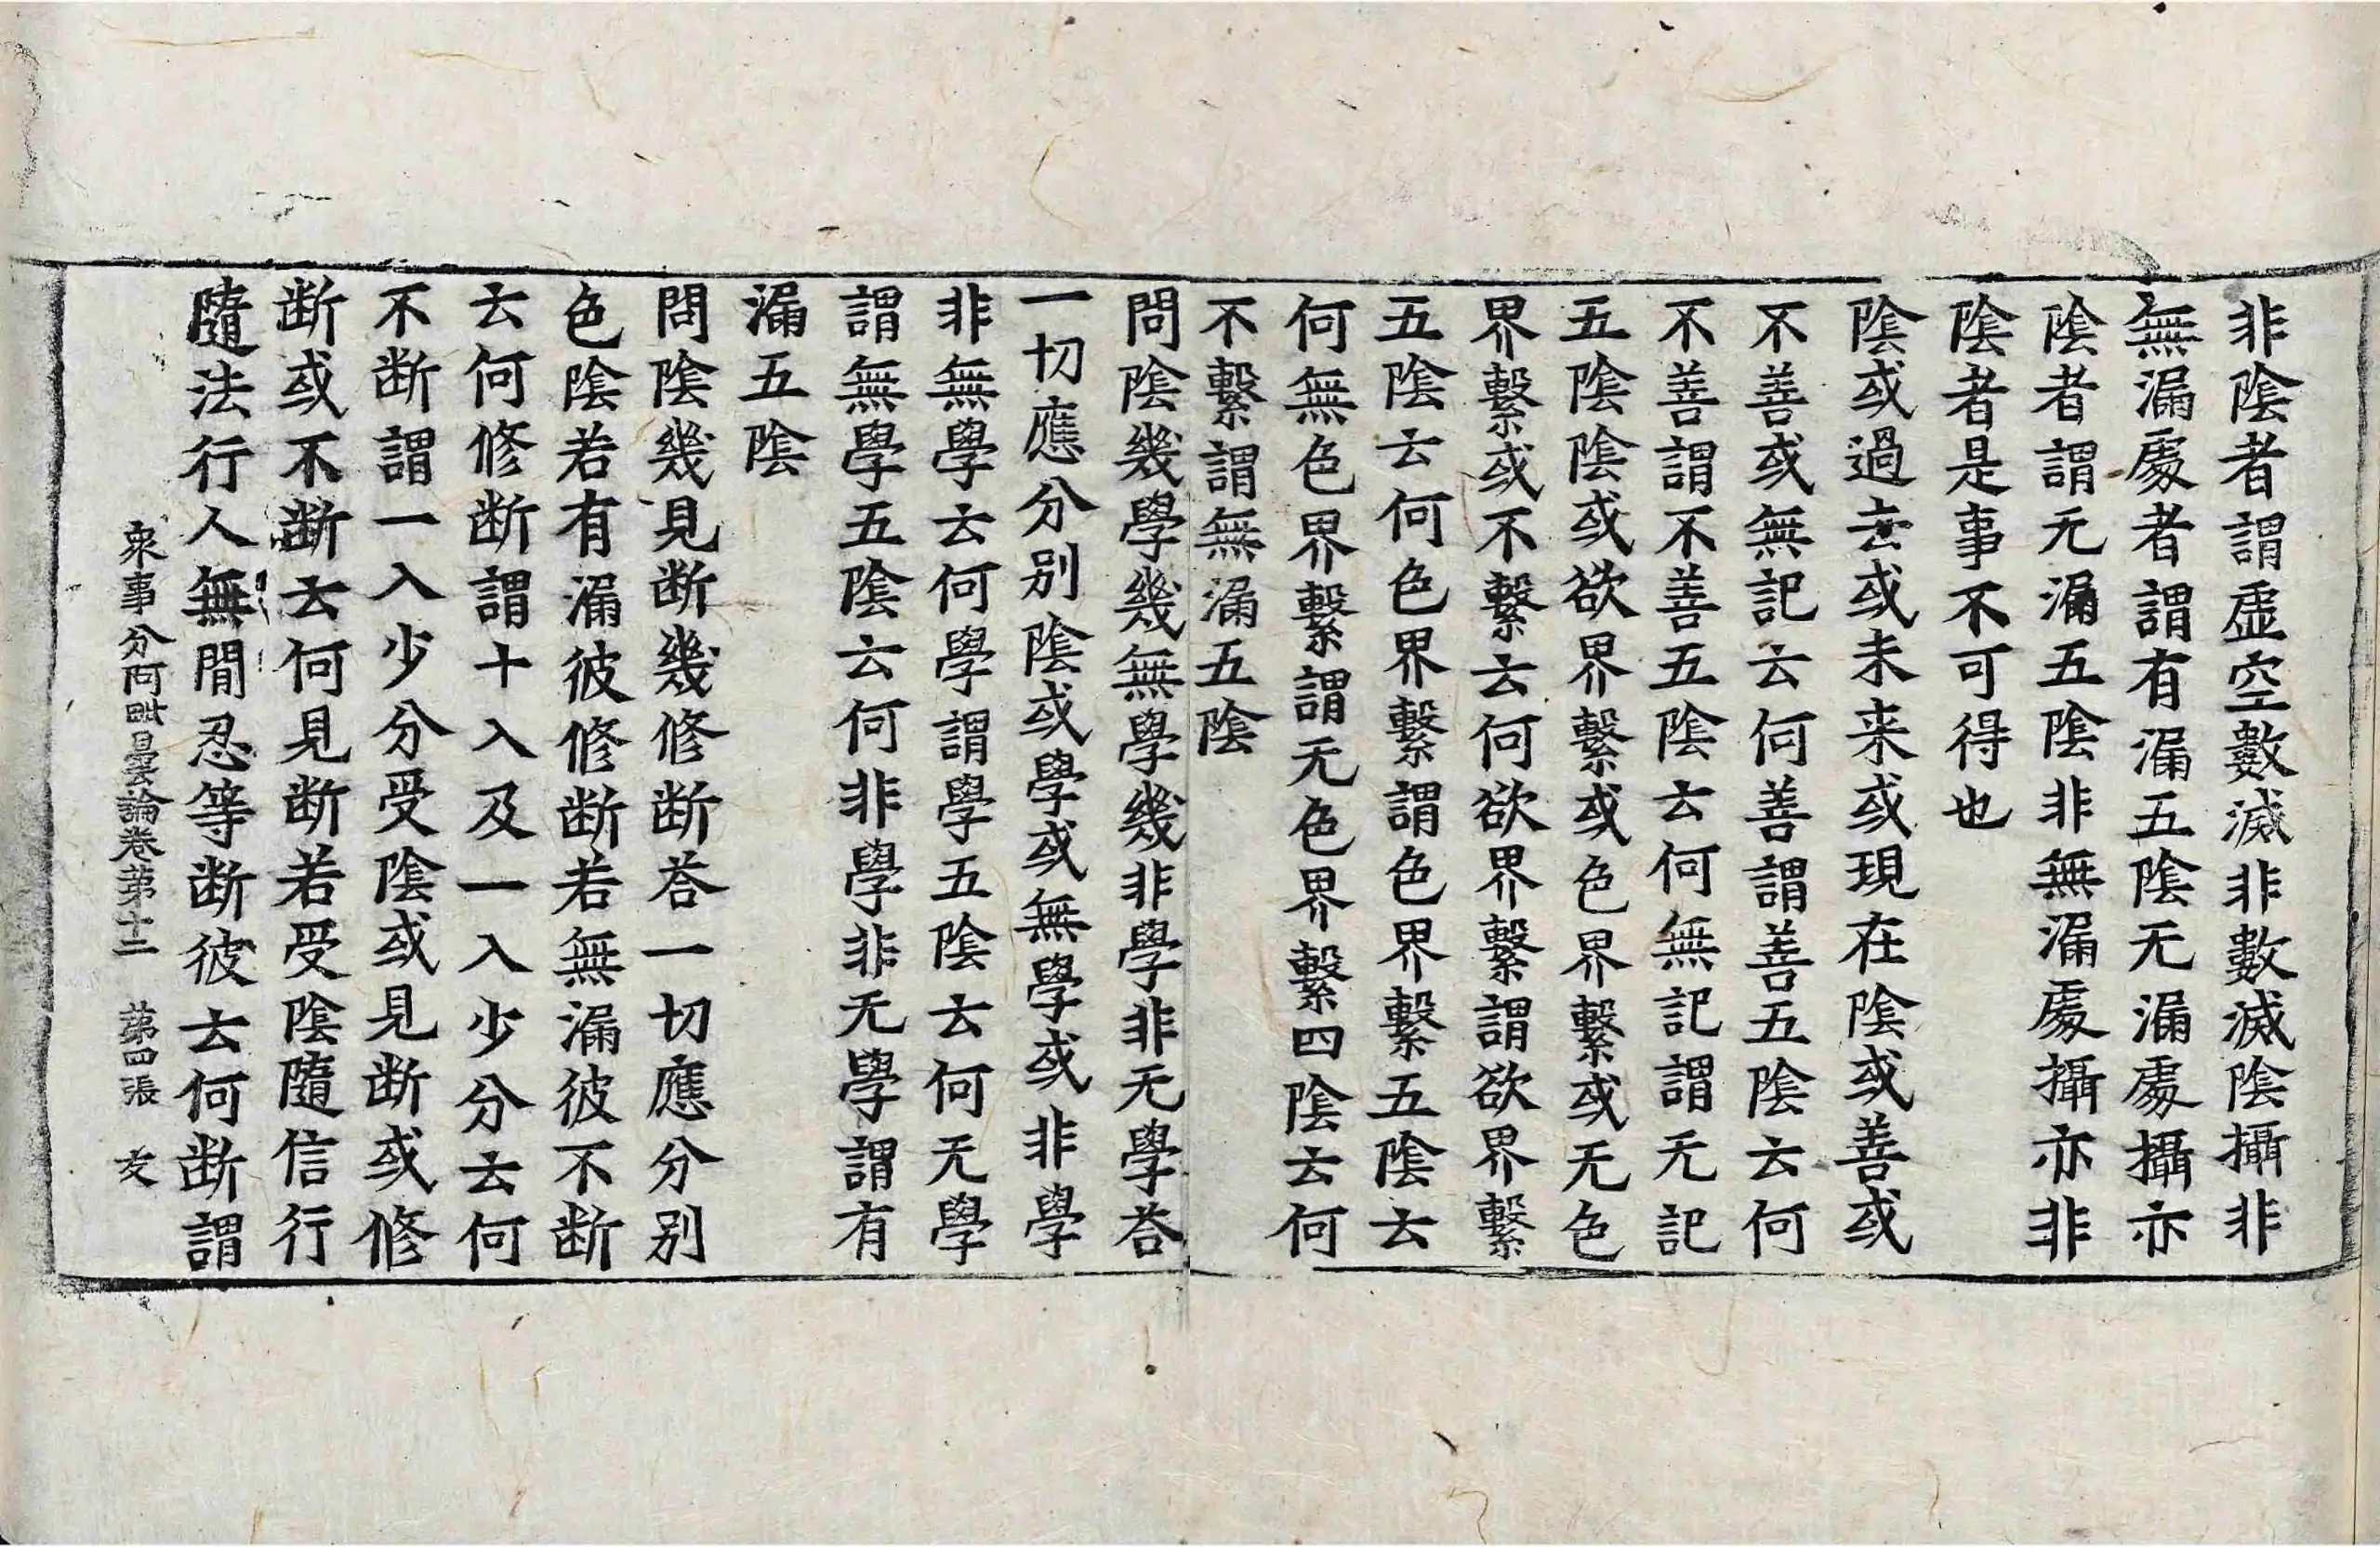 非陰者謂虛空數滅非數滅陰攝非
無漏處者謂有漏五陰无漏處攝亦
陰者謂无漏五陰非無漏處攝亦非
陰者是事不可得也
陰或過去或未来或現在陰或善或
不善或無記云何善謂善五陰云何
不善謂不善五陰云何無記謂无記
五陰陰或欲界繫或色界繫或无色
界繫或不繫云何欲界繫謂欲界繫
五陰云何色界繫謂色界繫五陰云
何無色界繫謂无色界繫四陰云何
不繫謂無漏五陰
問陰幾學幾無學幾非學非无學荅
一切應分别陰或學或無學或非學
非無學云何學謂學五陰云何无學
謂無學五陰云何非學非无學謂有
漏五陰
問陰幾見断幾修断荅一切應分别
色陰若有漏彼修断若無漏彼不断
云何修断謂十入及一入少分云何
不断謂一入少分受陰或見断或修
断或不断云何見断若受陰隨信行
隨法行人無間忍等断彼云何断謂
衆事分阿毗曇論卷第十二 第四張 友